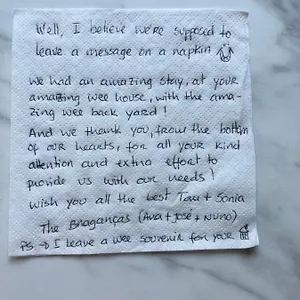 Well, I believe we're supposed to
leave a message on a napkin
We had an amazing stay, at your
amazing wee house, with the ama-
zing wee back yard!
And we thank you, from the bottom
of our hearts, for all your kind
attention and extra effort to
provide us with our needs!
Wish you all the best Tom + Sonia
The Braganças (Ava + José + Nuno)
PS → I leave a wee souvenir for your